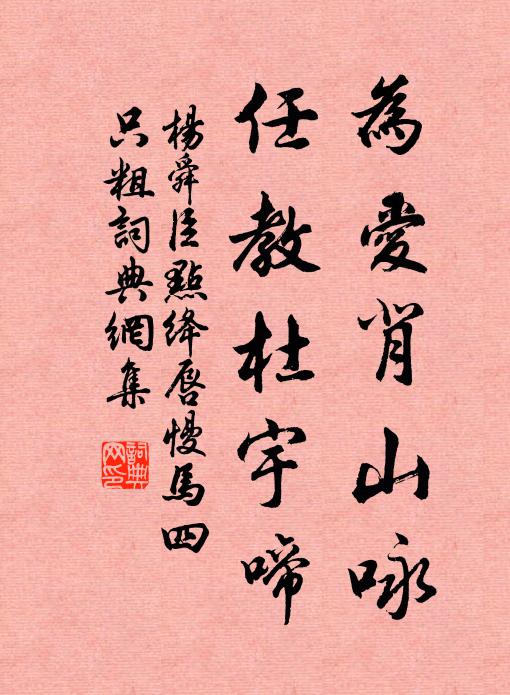 為愛肖山咏
任教杜宇啼
楊舜臣點絳唇慢馬四
只粗詞典網集
詞典
网印